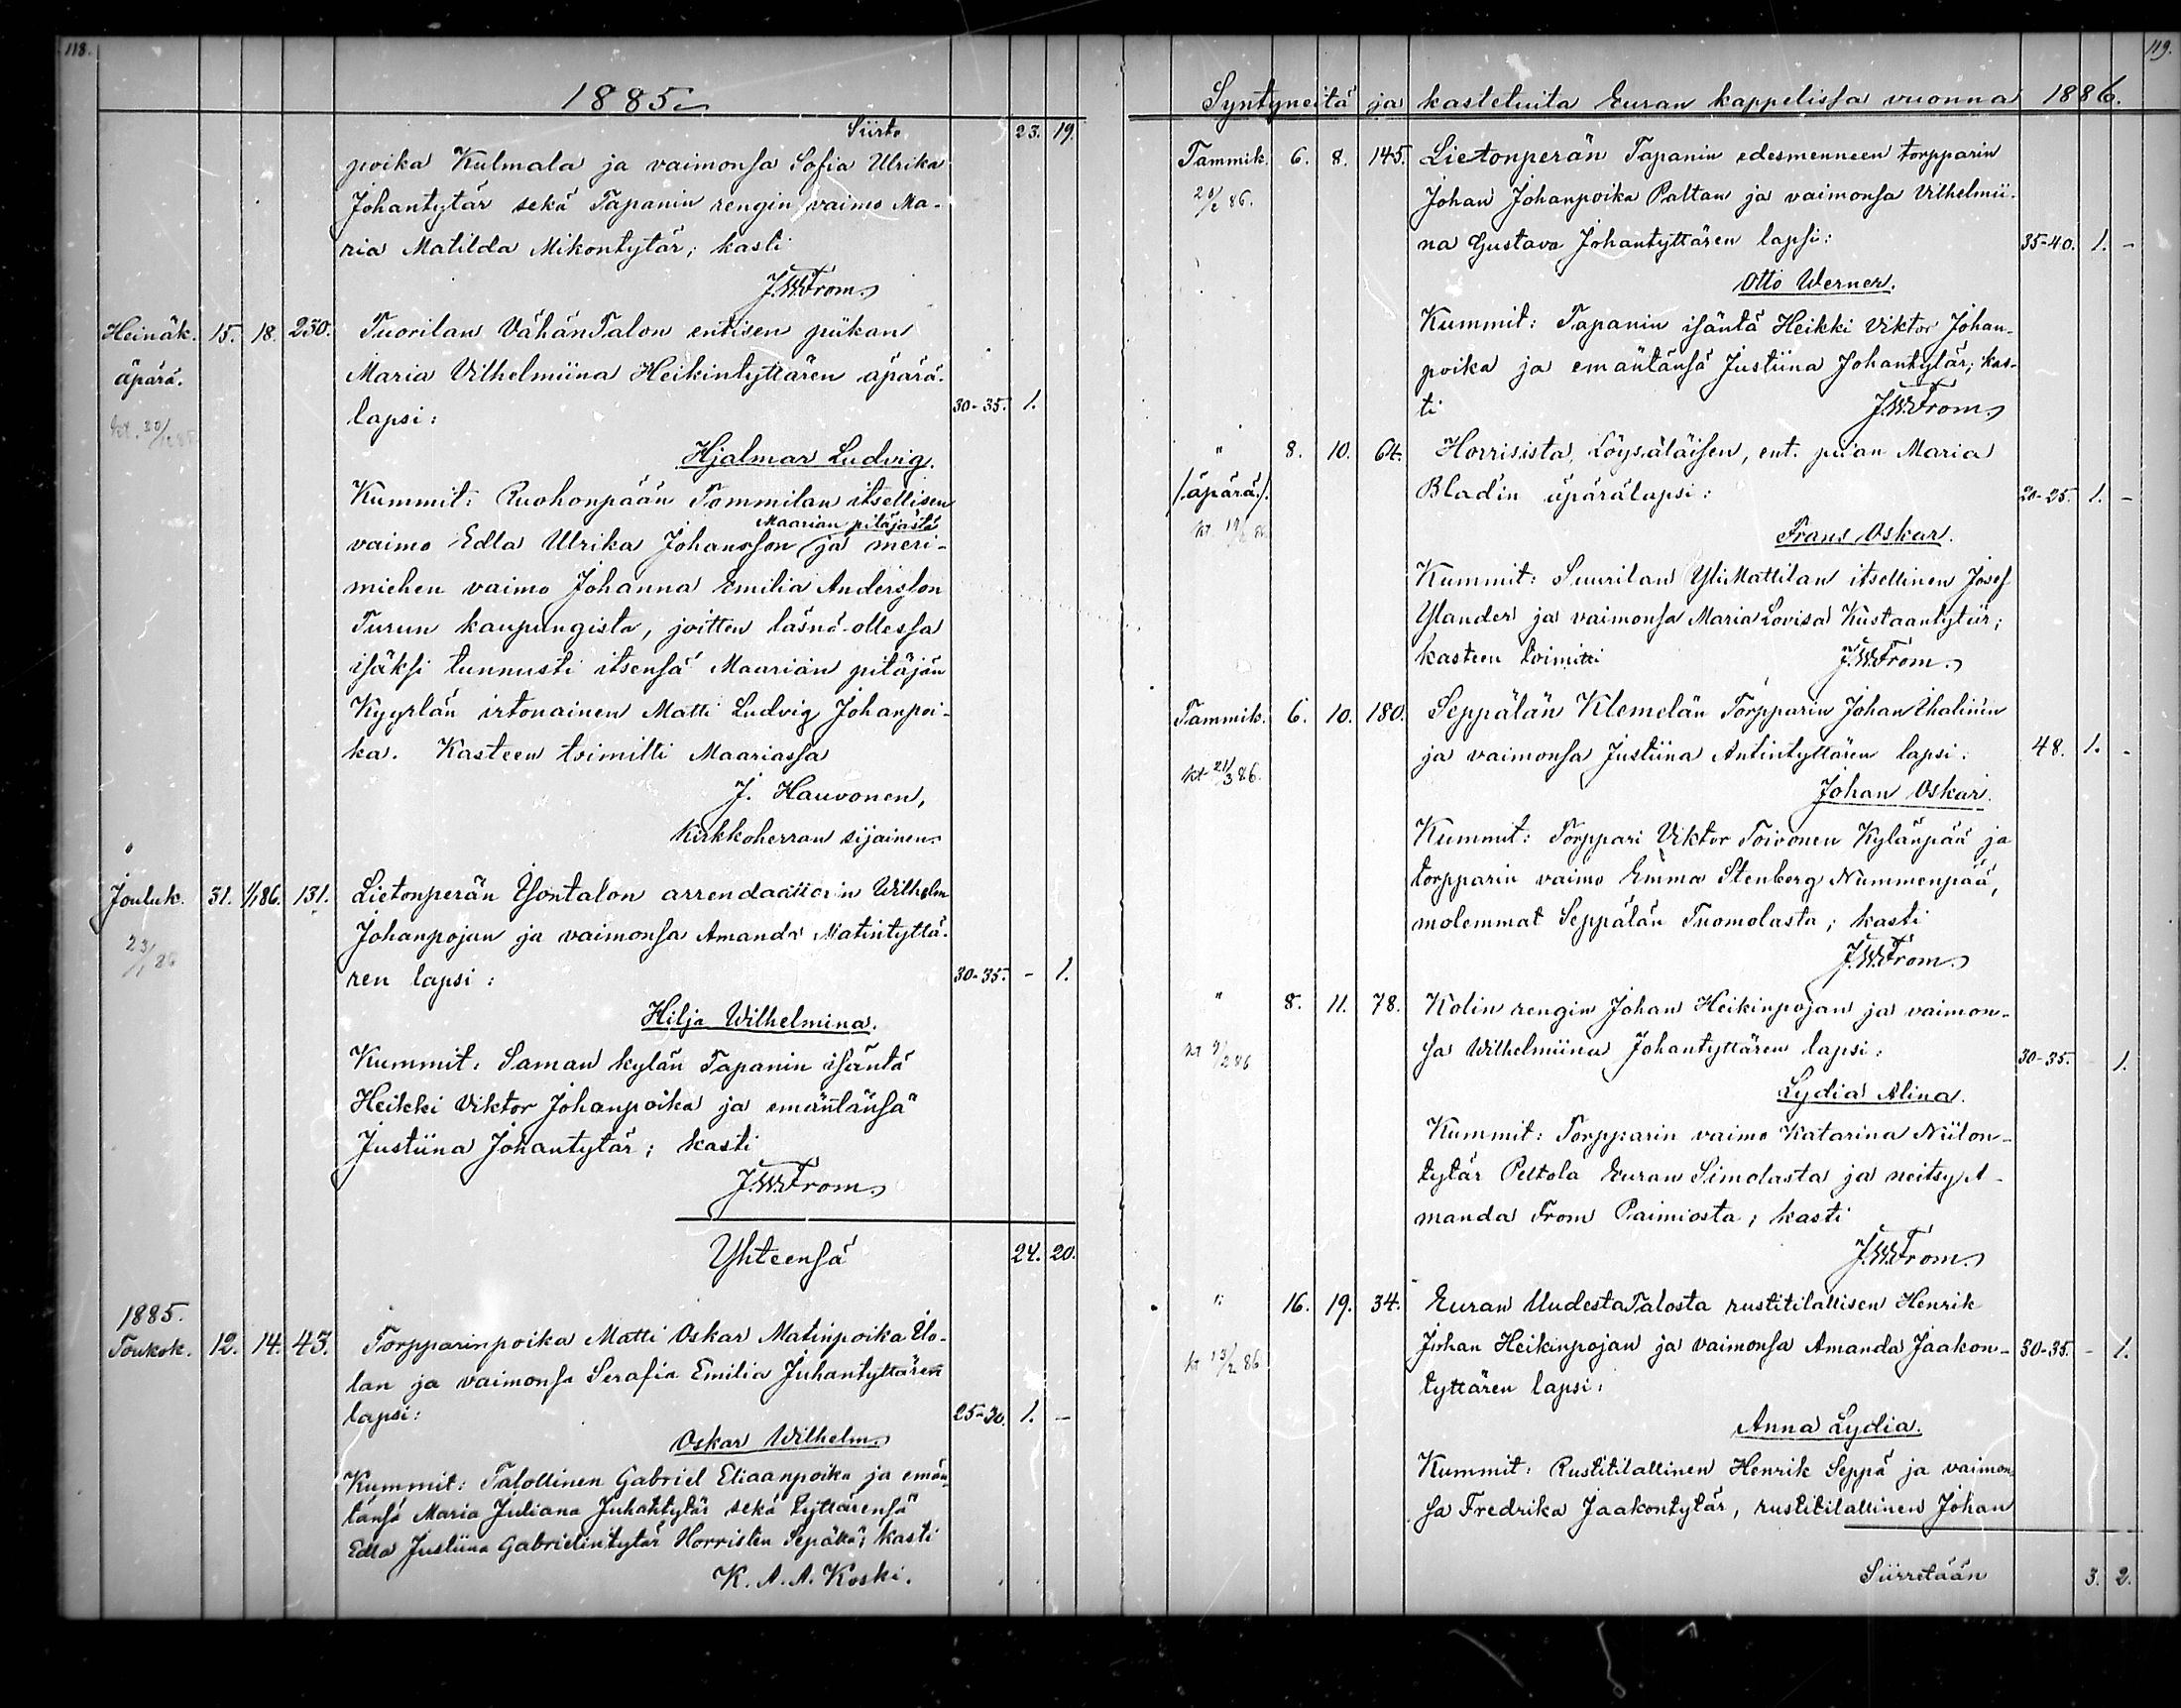 118.
1885
Siirto 23. 19.
poika Kulmala ja vaimonsa Sofia Ulrika
Johantytär sekä Tapanin rengin vaimo Ma-
ria Matilda Mikontytär; kasti
J.W.From.
Heinäk. 15. 18. 230. Tuorilan VähänTalon entisen piikan
äpärä. Maria Vilhelmiina Heikintyttären äpärä-
lapsi: 30-35. 1.
Hjalmar Ludvig.
Kummit: Ruohonpään Tommilan itsellisen
Maarian pitäjästä
vaimo Edla Ulrika Johansson ja meri-
miehen vaimo Johanna Emilia Andersson
Turun kaupungista, joitten läsnä-ollessa
isäksi tunnusti itsensä Maarian pitäjän
Kyyrlän irtonainen Matti Ludvig Johanpoi-
ka. Kasteen toimitti Maariassa
J. Hauvonen,
Kirkkoherran sijainen.
Jouluk. 31. 1/1 86. 131. Lietonperän Isontalon arrendaattorin Wilhelm
23/1 86 Johanpojan ja vaimonsa Amanda Matintyttä-
ren lapsi: 30-35. - 1.
Hilja Wilhelmina.
Kummit: Saman kylän Tapanin isäntä
Heikki Viktor Johanpoika ja emäntänsä
Justiina Johantytär; kasti
J.W.From.
Yhteensä 24. 20.
1885.
Toukok. 12. 14. 43. Torpparinpoika Matti Oskar Matinpoika Ulo-
lan ja vaimonsa Serafia Emilia Juhantyttären
lapsi: 25-30. 1. -
Oskar Wilhelm.
Kummit: Talollinen Gabriel Eliaanpoika ja emän-
tänsä Maria Juliana Juhantytär sekä tyttärensä
Edla Justiina Gabrielintytär Horristen Sepältä; kasti
K. A. A. Koski.
119.
Syntyneitä ja kastetuita Euran kappelissa vuonna 1886.
Tammik. 6. 8. 145. Lietonperän Tapanin edesmenneen torpparin
20/2 86. Johan Johanpoika Paltan ja vaimonsa Vilhelmii-
na Gustava Johantyttären lapsi: 35-40. 1. -
Otto Werner.
Kummit: Tapanin isäntä Heikki Viktor Johan-
poika ja emäntänsä Justiina Johantytär; kas-
ti J.W.From.
" 8. 10. 64. Horrisista, Löysäläisen, ent. piian Maria
/.äpärä./. Bladin äpärälapsi: 20-25. 1. -
Frans Oskar.
Kummit: Suurilan YliMattilan itsellinen Josef
Ylander ja vaimonsa Maria Lovisa Kustaantytär;
kasteen toimitti J.W.From.
Tammik. 6. 10. 180. Seppälän Klemelän Torpparin Johan Ihalinin
kt 21/3 86. ja vaimonsa Justiina Antintyttären lapsi: 48. 1. -
Johan Oskar.
Kummit: Torppari Viktor Toivonen Kylänpää ja
torpparin vaimo Emma Stenberg Nummenpää,
molemmat Seppälän Tuomolasta; kasti
J.W.From.
" 8. 11. 78. Kolin rengin Johan Heikinpojan ja vaimon-
kt 9/2 86 sa Wilhelmiina Johantyttären lapsi: 30-35. 1.
Lydia Alina.
Kummit: Torpparin vaimo Katarina Niilon-
tytär Peltola Euran Simolasta ja neitsy A-
manda From Paimiosta; kasti
J.W.From.
" 16. 19. 34. Euran UudestaTalosta rustitilallisen Henrik
kt 13/2 86 Johan Heikinpojan ja vaimonsa Amanda Jaakon- 30-35. - 1.
tyttären lapsi:
Anna Lydia.
Kummit: Rustitilallinen Henrik Seppä ja vaimon-
sa Fredrika Jaakontytär, rustitilallinen Johan
Siirretään 3. 2.